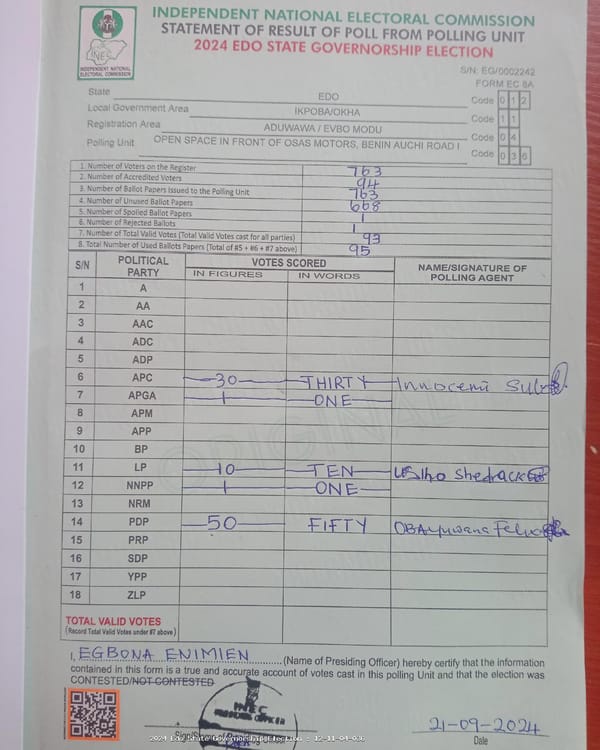 INDEPENDENT NATIONAL ELECTORAL COMMISSION
STATEMENT OF RESULT OF POLL FROM POLLING UNIT
2024 EDO STATE GOVERNORSHIP ELECTION
INEC
INDEPENDENT NATIONAL
ELECTORAL COMMISSION
S/N: EG/0002242
FORM EC 8A
State EDO Code 0 1 2
Local Government Area IKPOBA/OKHA Code 1 1
Registration Area ADUWAWA / EVBO MODU Code 0 4
Polling Unit OPEN SPACE IN FRONT OF OSAS MOTORS, BENIN AUCHI ROAD I Code 0 3 6
1. Number of Voters on the Register 763
2. Number of Accredited Voters 94
3. Number of Ballot Papers Issued to the Polling Unit 763
4. Number of Unused Ballot Papers 668
5. Number of Spoiled Ballot Papers 1
6. Number of Rejected Ballots 1
7. Number of Total Valid Votes (Total Valid Votes cast for all parties) 93
8. Total Number of Used Ballots Papers (Total of #5 + #6 + #7 above) 95
S/N POLITICAL PARTY VOTES SCORED NAME/SIGNATURE OF POLLING AGENT
IN FIGURES IN WORDS
1 A
2 AA
3 AAC
4 ADC
5 ADP
6 APC 30 THIRTY Innocent
7 APGA 1 ONE
8 APM
9 APP
10 BP
11 LP 10 TEN Shedrack
12 NNPP 1 ONE
13 NRM
14 PDP 50 FIFTY
15 PRP
16 SDP
17 YPP
18 ZLP
ORIGINAL
TOTAL VALID VOTES
(Record Total Valid Votes under #7 above)
I, EGBONA ENIMIEN (Name of Presiding Officer) hereby certify that the information
contained in this form is a true and accurate account of votes cast in this polling Unit and that the election was
CONTESTED/NOT CONTESTED
INEC
PRESIDING OFFICER
21-09-2024
Date
2024 Edo State Governorship Election : 12-11-04-036